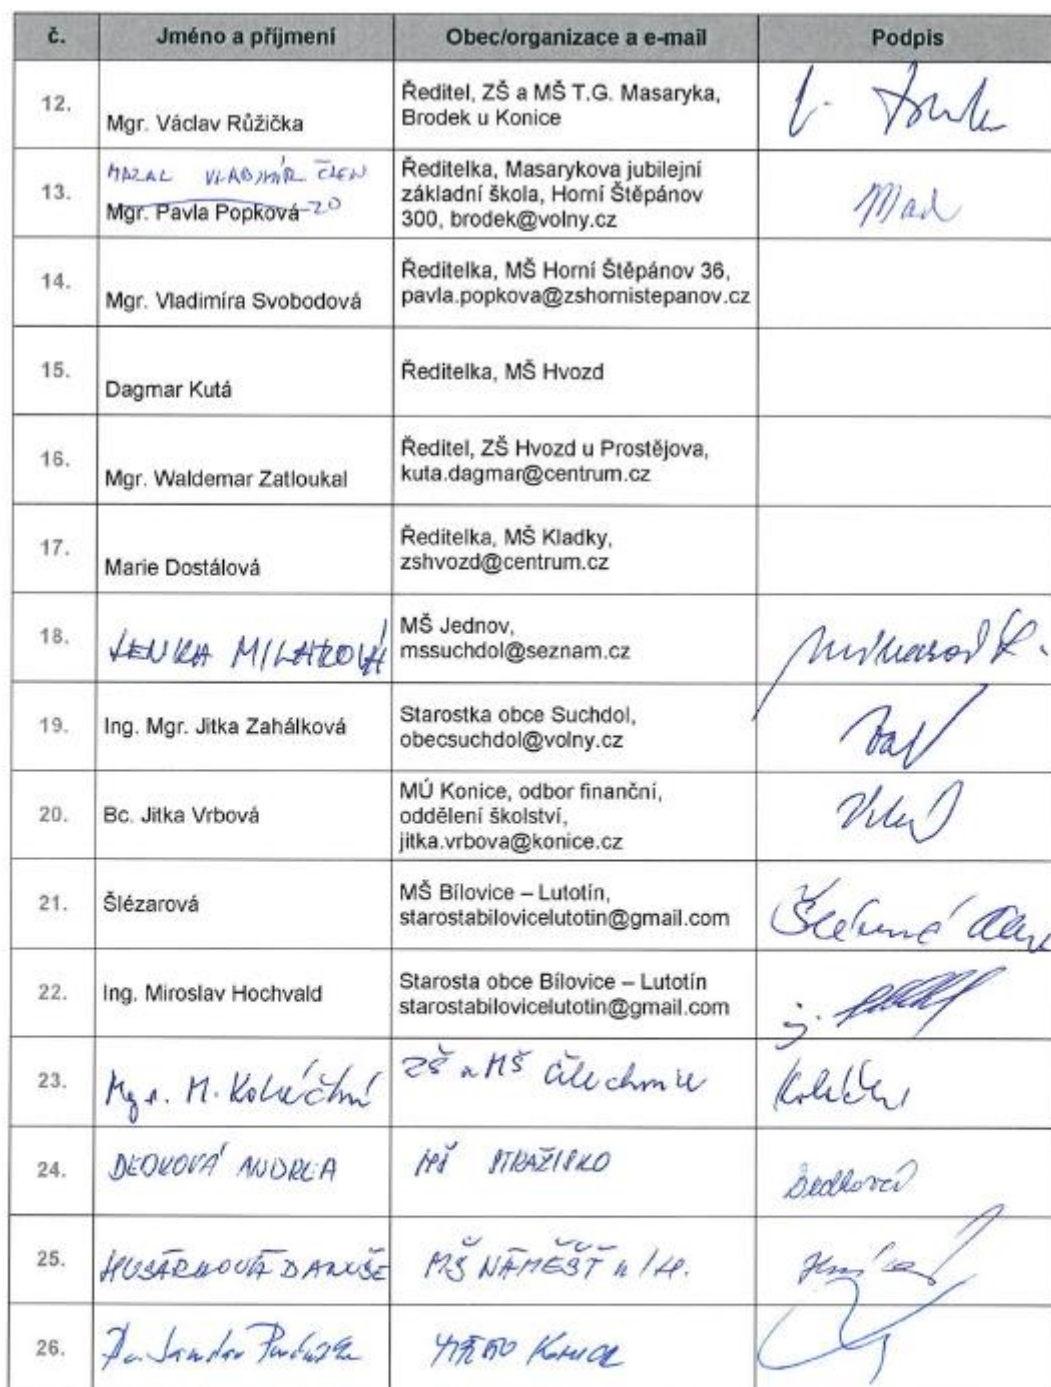 č. Jméno a příjmení Obec/organizace a e-mail Podpis
12. Mgr. Václav Růžička
Ředitel, ZŠ a MŠ T.G. Masaryka,
Brodek u Konice
13. MAZAL VLADIMÍR ČLEN
Mgr. Pavla Popková ZO
Ředitelka, Masarykova jubilejní
základní škola, Horní Štěpánov
300, brodek@volny.cz
14. Mgr. Vladimíra Svobodová
Ředitelka, MŠ Horní Štěpánov 36,
pavla.popkova@zshornistepanov.cz
15. Dagmar Kutá
Ředitelka, MŠ Hvozd
16. Mgr. Waldemar Zatloukal
Ředitel, ZŠ Hvozd u Prostějova,
kuta.dagmar@centrum.cz
17. Marie Dostálová
Ředitelka, MŠ Kladky,
zshvozd@centrum.cz
18. LENKA
MŠ Jednov,
mssuchdol@seznam.cz
19. Ing. Mgr. Jitka Zahálková
Starostka obce Suchdol,
obecsuchdol@volny.cz
20. Bc. Jitka Vrbová
MÚ Konice, odbor finanční,
oddělení školství,
jitka.vrbova@konice.cz
21. Šlézarová
MŠ Bílovice – Lutotín,
starostabilovicelutotin@gmail.com
22. Ing. Miroslav Hochvald
Starosta obce Bílovice – Lutotín
starostabilovicelutotin@gmail.com
23. Mgr. M.
ZŠ a MŠ
24. ANDREA
MŠ STRAŽISKO
25. DANUŠE
MŠ NÁMĚŠŤ n/H.
26.